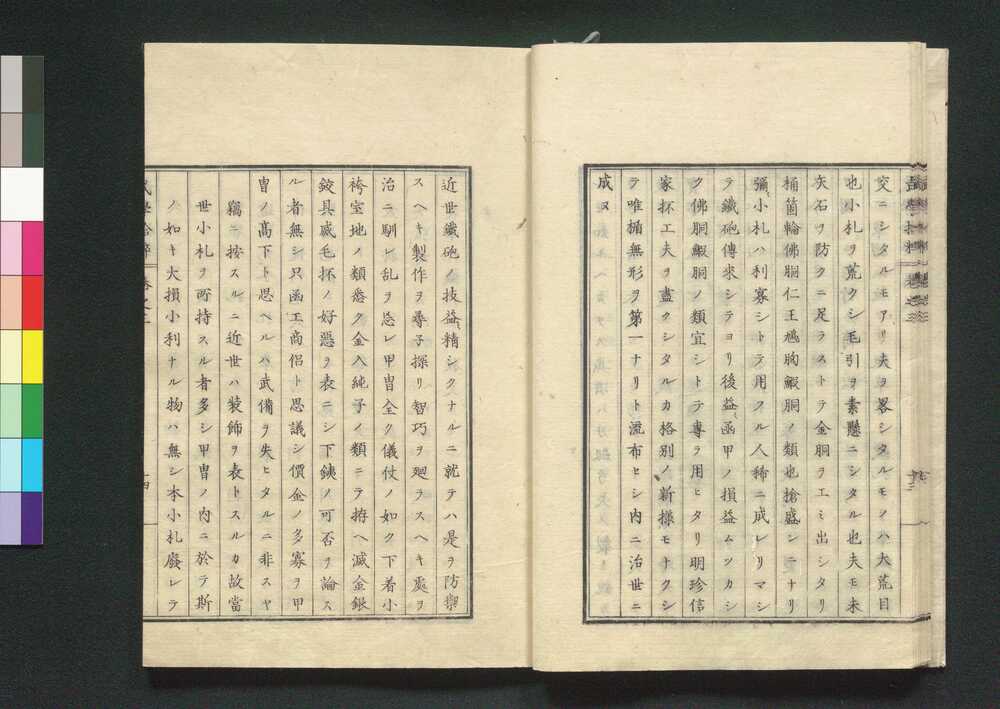 交ニシタルモアリ夫ヲ畧シタルモノハ大荒目
也小札ヲ荒クシ毛引ヲ素懸ニシタル也夫モ未
矢石ヲ防クニ足ラストテ金胴ヲエミ出シタリ
桶箇輪佛胴仁王鳩胸鰕胴ノ類也搶盛ンニナリ
彌小札ハ利寡シトテ用フル人稀ニ成レリマシ
テ鐵砲傳來シテヨリ後益〻函甲ノ損益ムツカシ
ク佛胴鰕胴ノ類宜シトテ專ヲ用ヒタリ明珍信
家抔工夫ヲ盡クシタルカ格別ノ新様モナクシ
テ唯楯無形ヲ第一ナリト流布ヒシ内ニ治世ニ
成ヌ
近世鐵砲ノ技益〻精シクナルニ就テハ是ヲ防禦
スヘキ製作ヲ尋子探リ智巧ヲ廻ラスヘキ處ヲ
治ニ馴レ乱ヲ忘レ甲冑全ク儀仗ノ如ク下着小
袴室地ノ類悉ク金入純子ノ類ニテ拵ヘ滅金銀
鉸具威毛抔ノ好惡ヲ表ニシ下鋳ノ可否ヲ論ス
ル者無シ只函工商侶ト思議シ價金ノ多寡ヲ甲
冑ノ高下ト思ヘルハ武備ヲ失ヒタルニ非スヤ
竊ニ按スルニ近世ハ装飾ヲ表トスルカ故當
世小札ヲ所持スル者多シ甲冑ノ内ニ於テ斯
ノ如キ大損小利ナル物ハ無シ本小札廢レテ